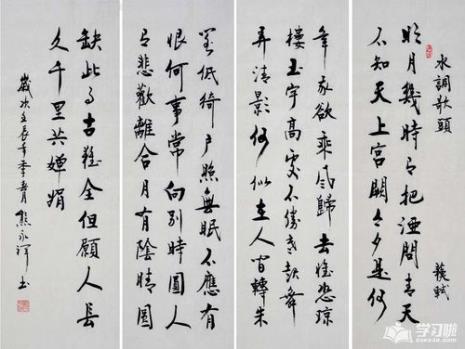 水調歌頭 蘇軾
明月幾時有把酒問青天
不知天上宮闕今夕是何
年我欲乘風歸去惟恐瓊
樓玉宇高處不勝寒起舞
弄清影何似在人間轉朱
閣低綺戶照無眠不應有
恨何事常向別時圓人
有悲歡離合月有陰晴圓
缺此事古難全但願人長
久千里共嬋娟
歲次壬辰年季春月熊永书
学习啦